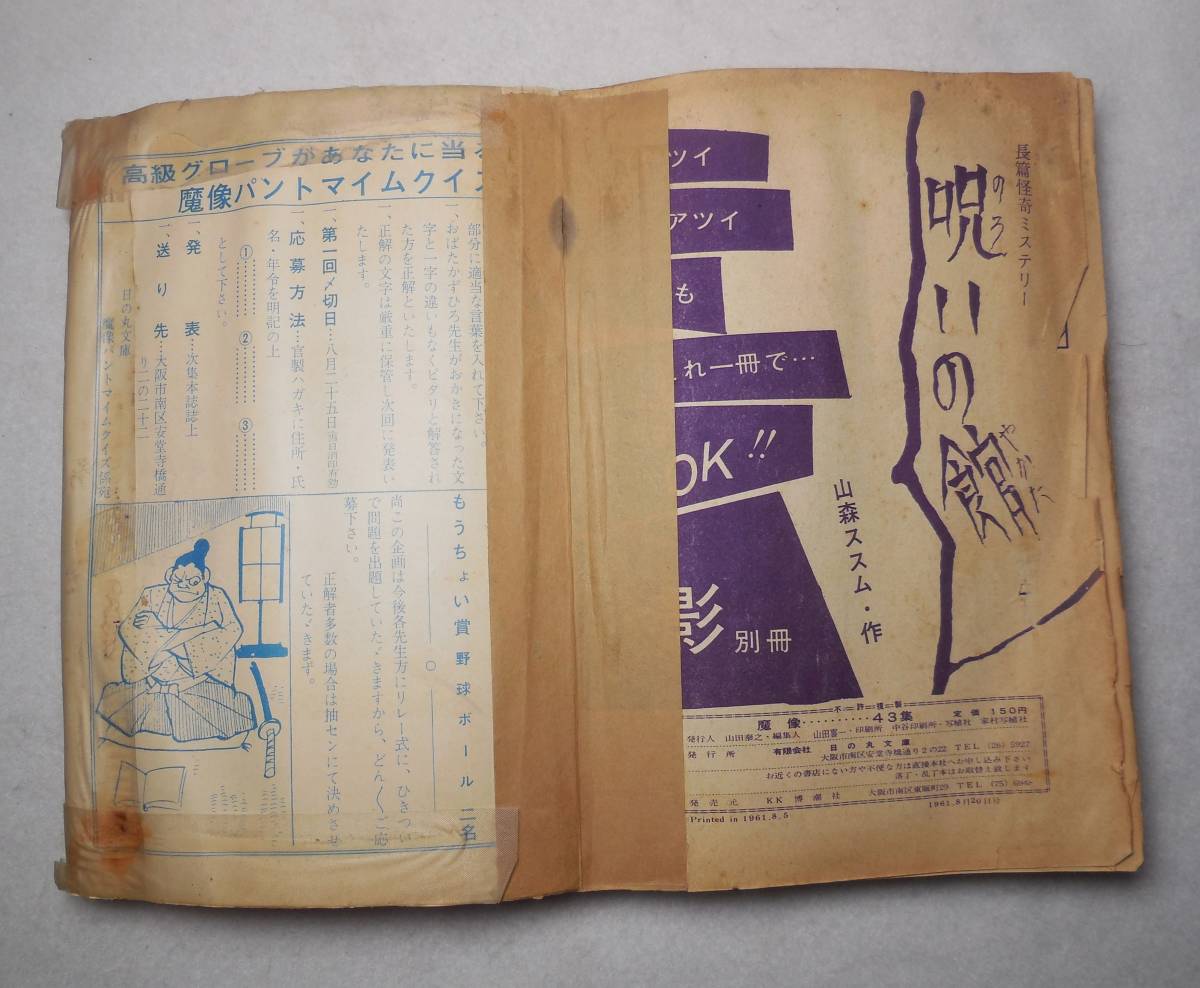 長篇怪奇ミステリー
のろ
呪いの館
やかた
山森ススム・作
ツイ
アツイ
も
れ一冊で…
OK!!
影 別冊
不許複製
魔像………43集 定価 150円
発行人 山田泰之・編集人 山田喜一・印刷所 中谷印刷所・写植社 家村写植社
発行所 有限会社 日の丸文庫
大阪市南区安堂寺橋通り2の22 TEL (26) 5927
お近くの書店にない方や不便な方は直接本社へお申し込み下さい
落丁・乱丁本はお取替え致します
発売元 KK 博潮社 大阪市南区東賑町29 TEL (75)
1961.8月20日号
Printed in 1961.8.5
高級グローブがあなたに当る
魔像パントマイムクイズ
部分に適当な言葉を入れて下さい。
一、おばたかずひろ先生がおかきになった文
字と一字の違いもなくピタリと解答され
た方を正解といたします。
一、正解の文字は厳重に保管し次回に発表い
たします。
一、第一回〆切日…八月二十五日(当日消印有効)
一、応募方法…官製ハガキに住所・氏
名・年令を明記の上
①………
②………
③………
として下さい。
一、発表…次集本誌誌上
一、送り先…大阪市南区安堂寺橋通
り二の二十二
日の丸文庫
魔像パントマイムクイズ係宛
もうちょい賞野球ボール二名
○
尚この企画は今後各先生方にリレー式に、ひきつい
で問題を出題していたゞきますから、どん〱ご応
募下さい。
正解者多数の場合は抽センにて決めさせ
ていたゞきます。